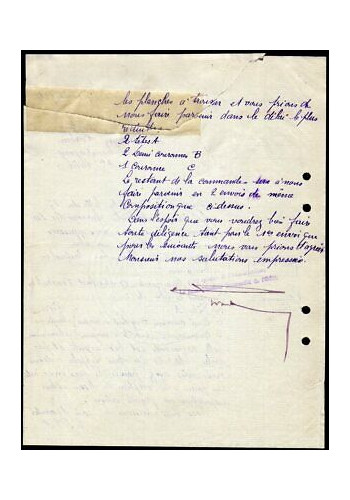 les planches à trouver et vous prions de
nous faire parvenir dans le délai le plus
2 Têtes A
2 Demi couronnes B
1 Couronne C
Le restant de la commande sera à nous
faire parvenir en 2 envois de même
composition que ci dessus.
Dans l'espoir que vous voudrez bien faire
toute diligence tant pour le 1er envoi que
pour les suivants nous vous prions d'agréer
Monsieur nos salutations empressées